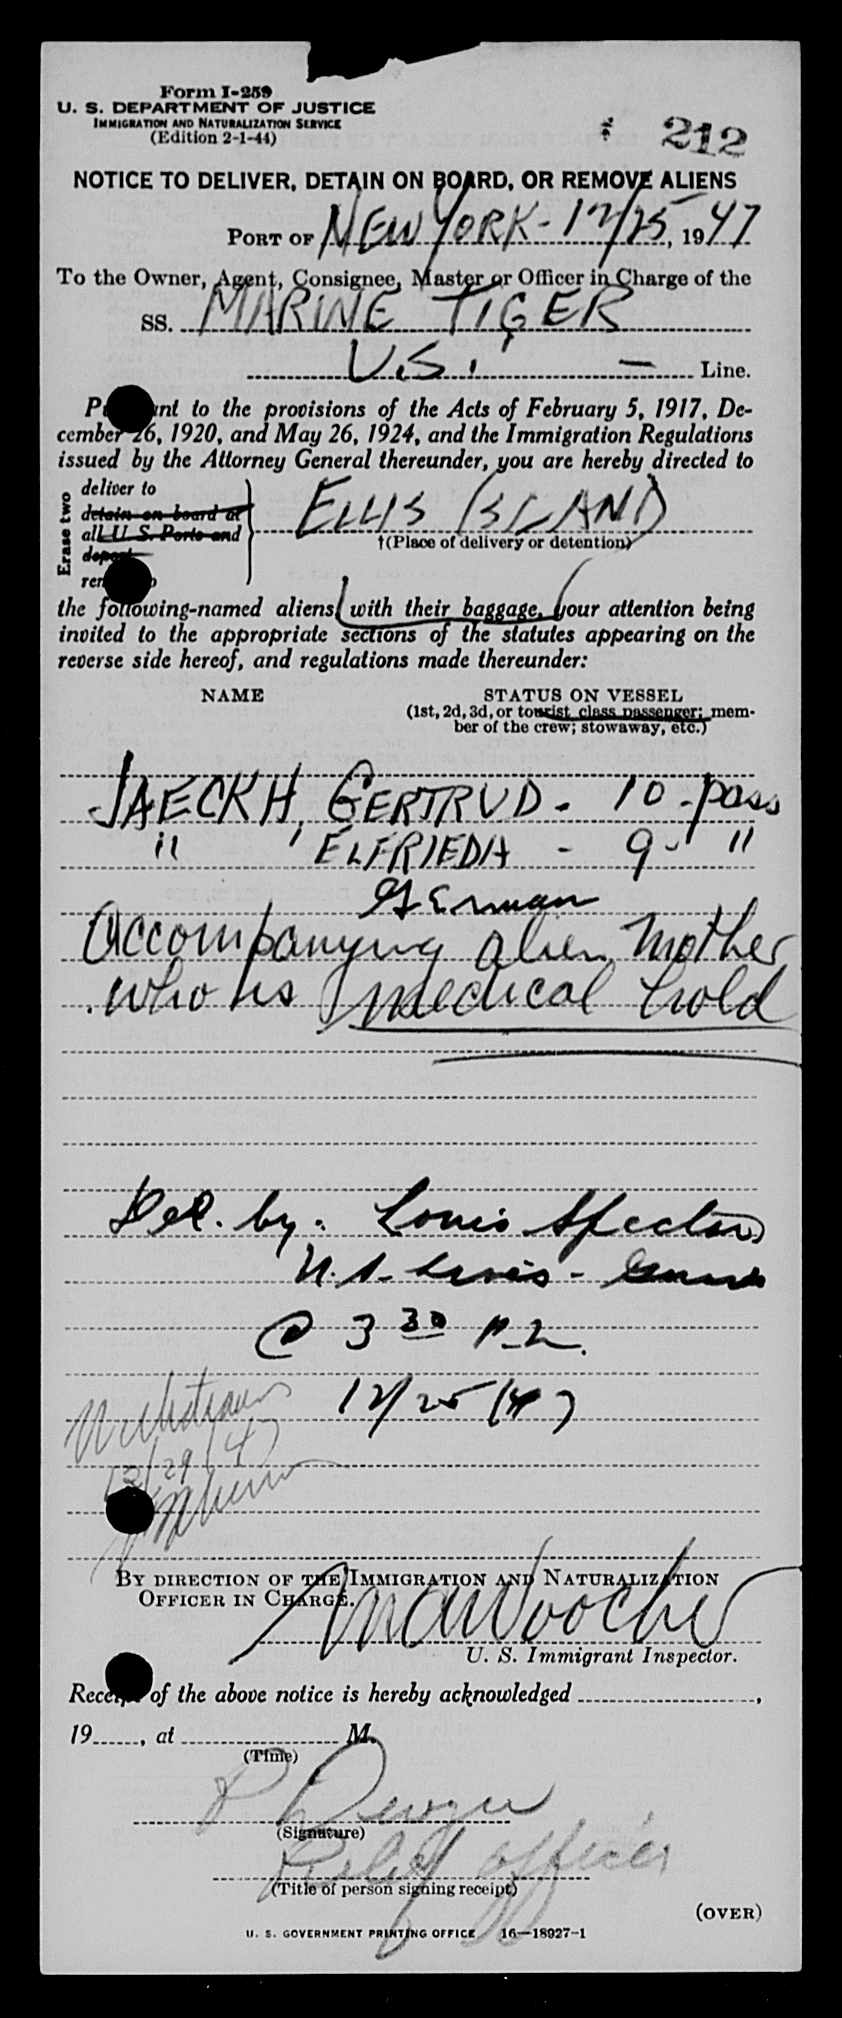 Form I-259
U. S. DEPARTMENT OF JUSTICE
IMMIGRATION AND NATURALIZATION SERVICE
(Edition 2-1-44)
212
NOTICE TO DELIVER, DETAIN ON BOARD, OR REMOVE ALIENS
PORT OF NEW YORK - 12/25, 1947
To the Owner, Agent, Consignee, Master or Officer in Charge of the
SS. MARINE TIGER
U.S. - Line.
Pursuant to the provisions of the Acts of February 5, 1917, De-
cember 26, 1920, and May 26, 1924, and the Immigration Regulations
issued by the Attorney General thereunder, you are hereby directed to
Erase two
deliver to
detain on board at
all U S. Ports and
deport
ELLIS ISLAND
†(Place of delivery or detention)
the following-named aliens with their baggage, your attention being
invited to the appropriate sections of the statutes appearing on the
reverse side hereof, and regulations made thereunder:
NAME STATUS ON VESSEL
(1st, 2d, 3d, or tourist class passenger; mem-
ber of the crew; stowaway, etc.)
JAECKH, GERTRUD - 10 - pass
" ELFRIEDA - 9 - "
German
Accompanying alien mother
who is medical hold
Del. by: Louis Spector
- Guard
@ 3 30 P.M.
12/25/47
12/29/47
BY DIRECTION OF THE IMMIGRATION AND NATURALIZATION
OFFICER IN CHARGE.
U. S. Immigrant Inspector.
Receipt of the above notice is hereby acknowledged ,
19 , at M.
(Time)
(Signature)
Relief Officer
(Title of person signing receipt)
(OVER)
U. S. GOVERNMENT PRINTING OFFICE 16—18927-1